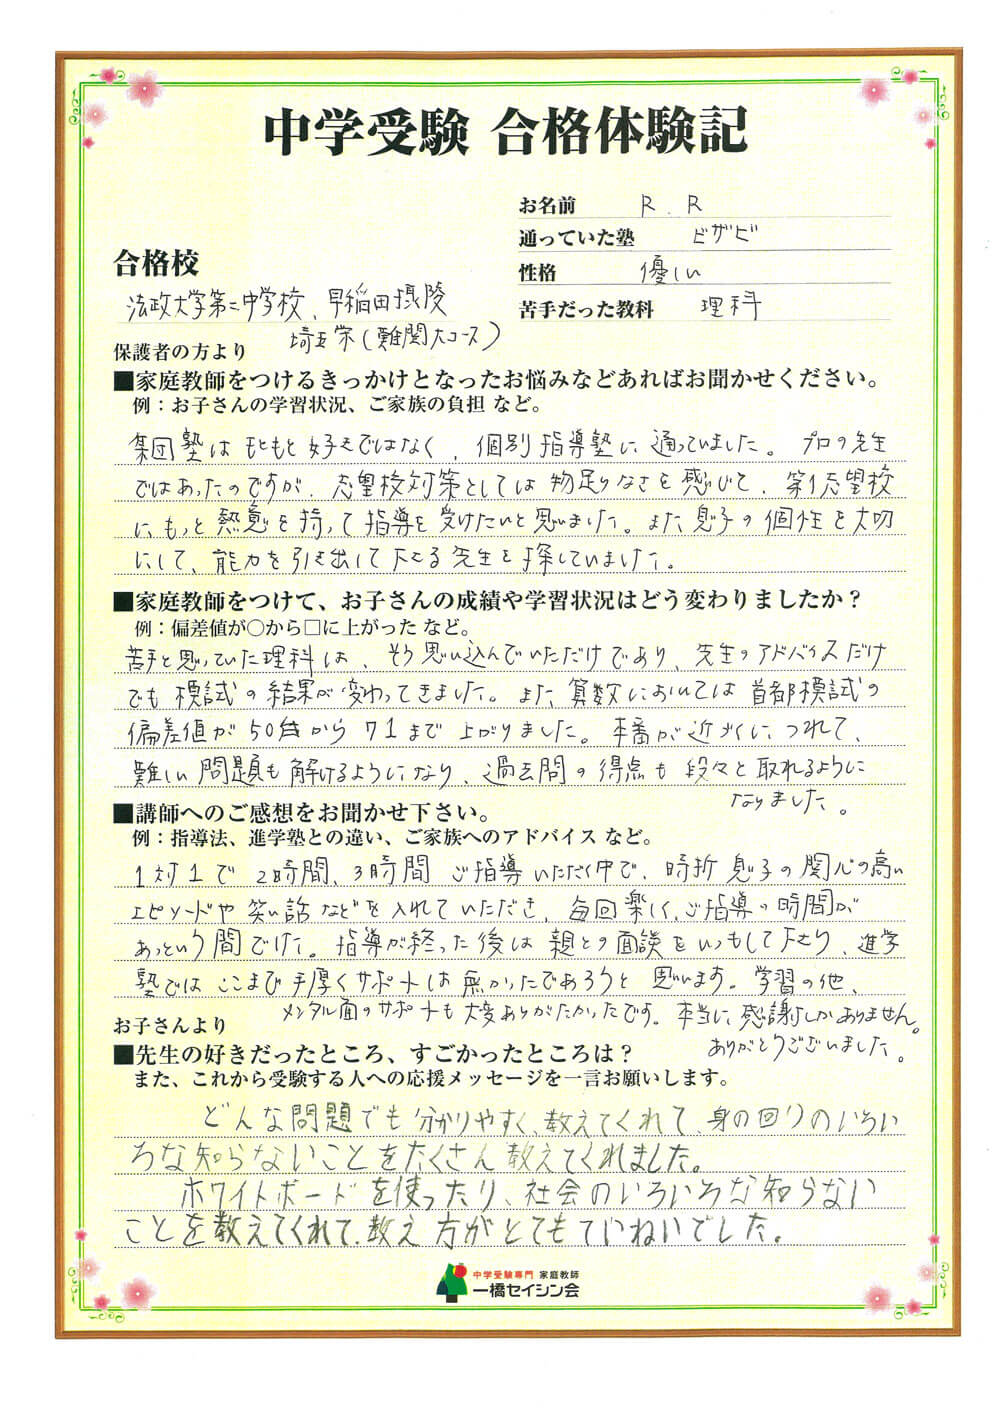 中学受験 合格体験記
お名前 R.R
通っていた塾 ビザビ
性格 優しい
苦手だった教科 理科
合格校
法政大学第二中学校、早稲田摂陵
埼玉栄(難関大コース)
保護者の方より
■家庭教師をつけるきっかけとなったお悩みなどあればお聞かせください。
例：お子さんの学習状況、ご家族の負担 など。
集団塾はもともと好きではなく、個別指導塾に通っていました。プロの先生
ではあったのですが、志望校対策としては物足りなさを感じて、第1志望校
にもっと熱意を持って指導を受けたいと思いました。また、息子の個性を大切
にして、能力を引き出して下さる先生を探していました。
■家庭教師をつけて、お子さんの成績や学習状況はどう変わりましたか？
例：偏差値が○から□に上がった など。
苦手と思っていた理科は、そう思い込んでいただけであり、先生のアドバイスだけ
でも模試の結果が変わってきました。また、算数においては首都模試の
偏差値が50台から71まで上がりました。本番が近づくにつれて、
難しい問題も解けるようになり、過去問の得点も段々と取れるように
なりました。
■講師へのご感想をお聞かせ下さい。
例：指導法、進学塾との違い、ご家族へのアドバイス など。
1対1で2時間、3時間ご指導いただく中で、時折息子の関心の高い
エピソードや笑い話などを入れていただき、毎回楽しく、ご指導の時間が
あっという間でした。指導が終った後は親との面談をいつもして下さり、進学
塾ではここまで手厚くサポートは無かったであろうと思います。学習の他、
メンタル面のサポートも大変ありがたかったです。本当に感謝しかありません。
ありがとうございました。
お子さんより
■先生の好きだったところ、すごかったところは？
また、これから受験する人への応援メッセージを一言お願いします。
どんな問題でも分かりやすく、教えてくれて、身の回りのいろい
ろな知らないことをたくさん教えてくれました。
ホワイトボードを使ったり、社会のいろいろな知らない
ことを教えてくれて、教え方がとてもていねいでした。
中学受験専門 家庭教師
一橋セイシン会